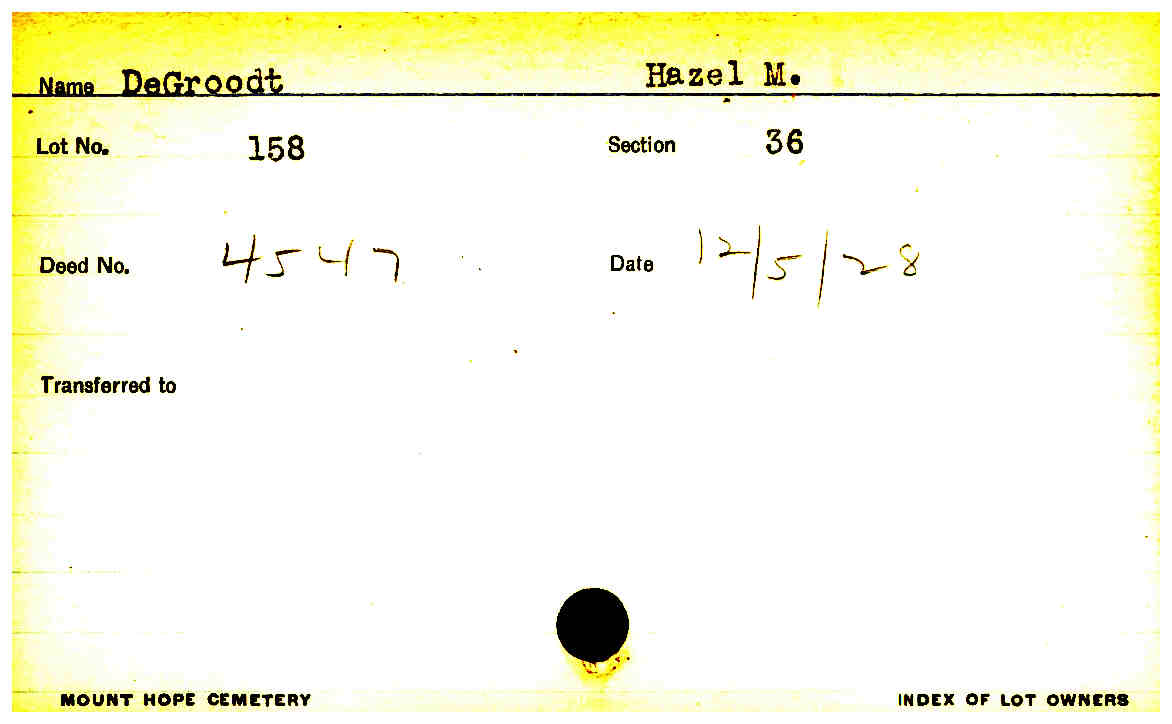 Name DeGroodt Hazel M.
Lot No. 158 Section 36
Deed No. 4547 Date 12/5/28
Transferred to
MOUNT HOPE CEMETERY INDEX OF LOT OWNERS